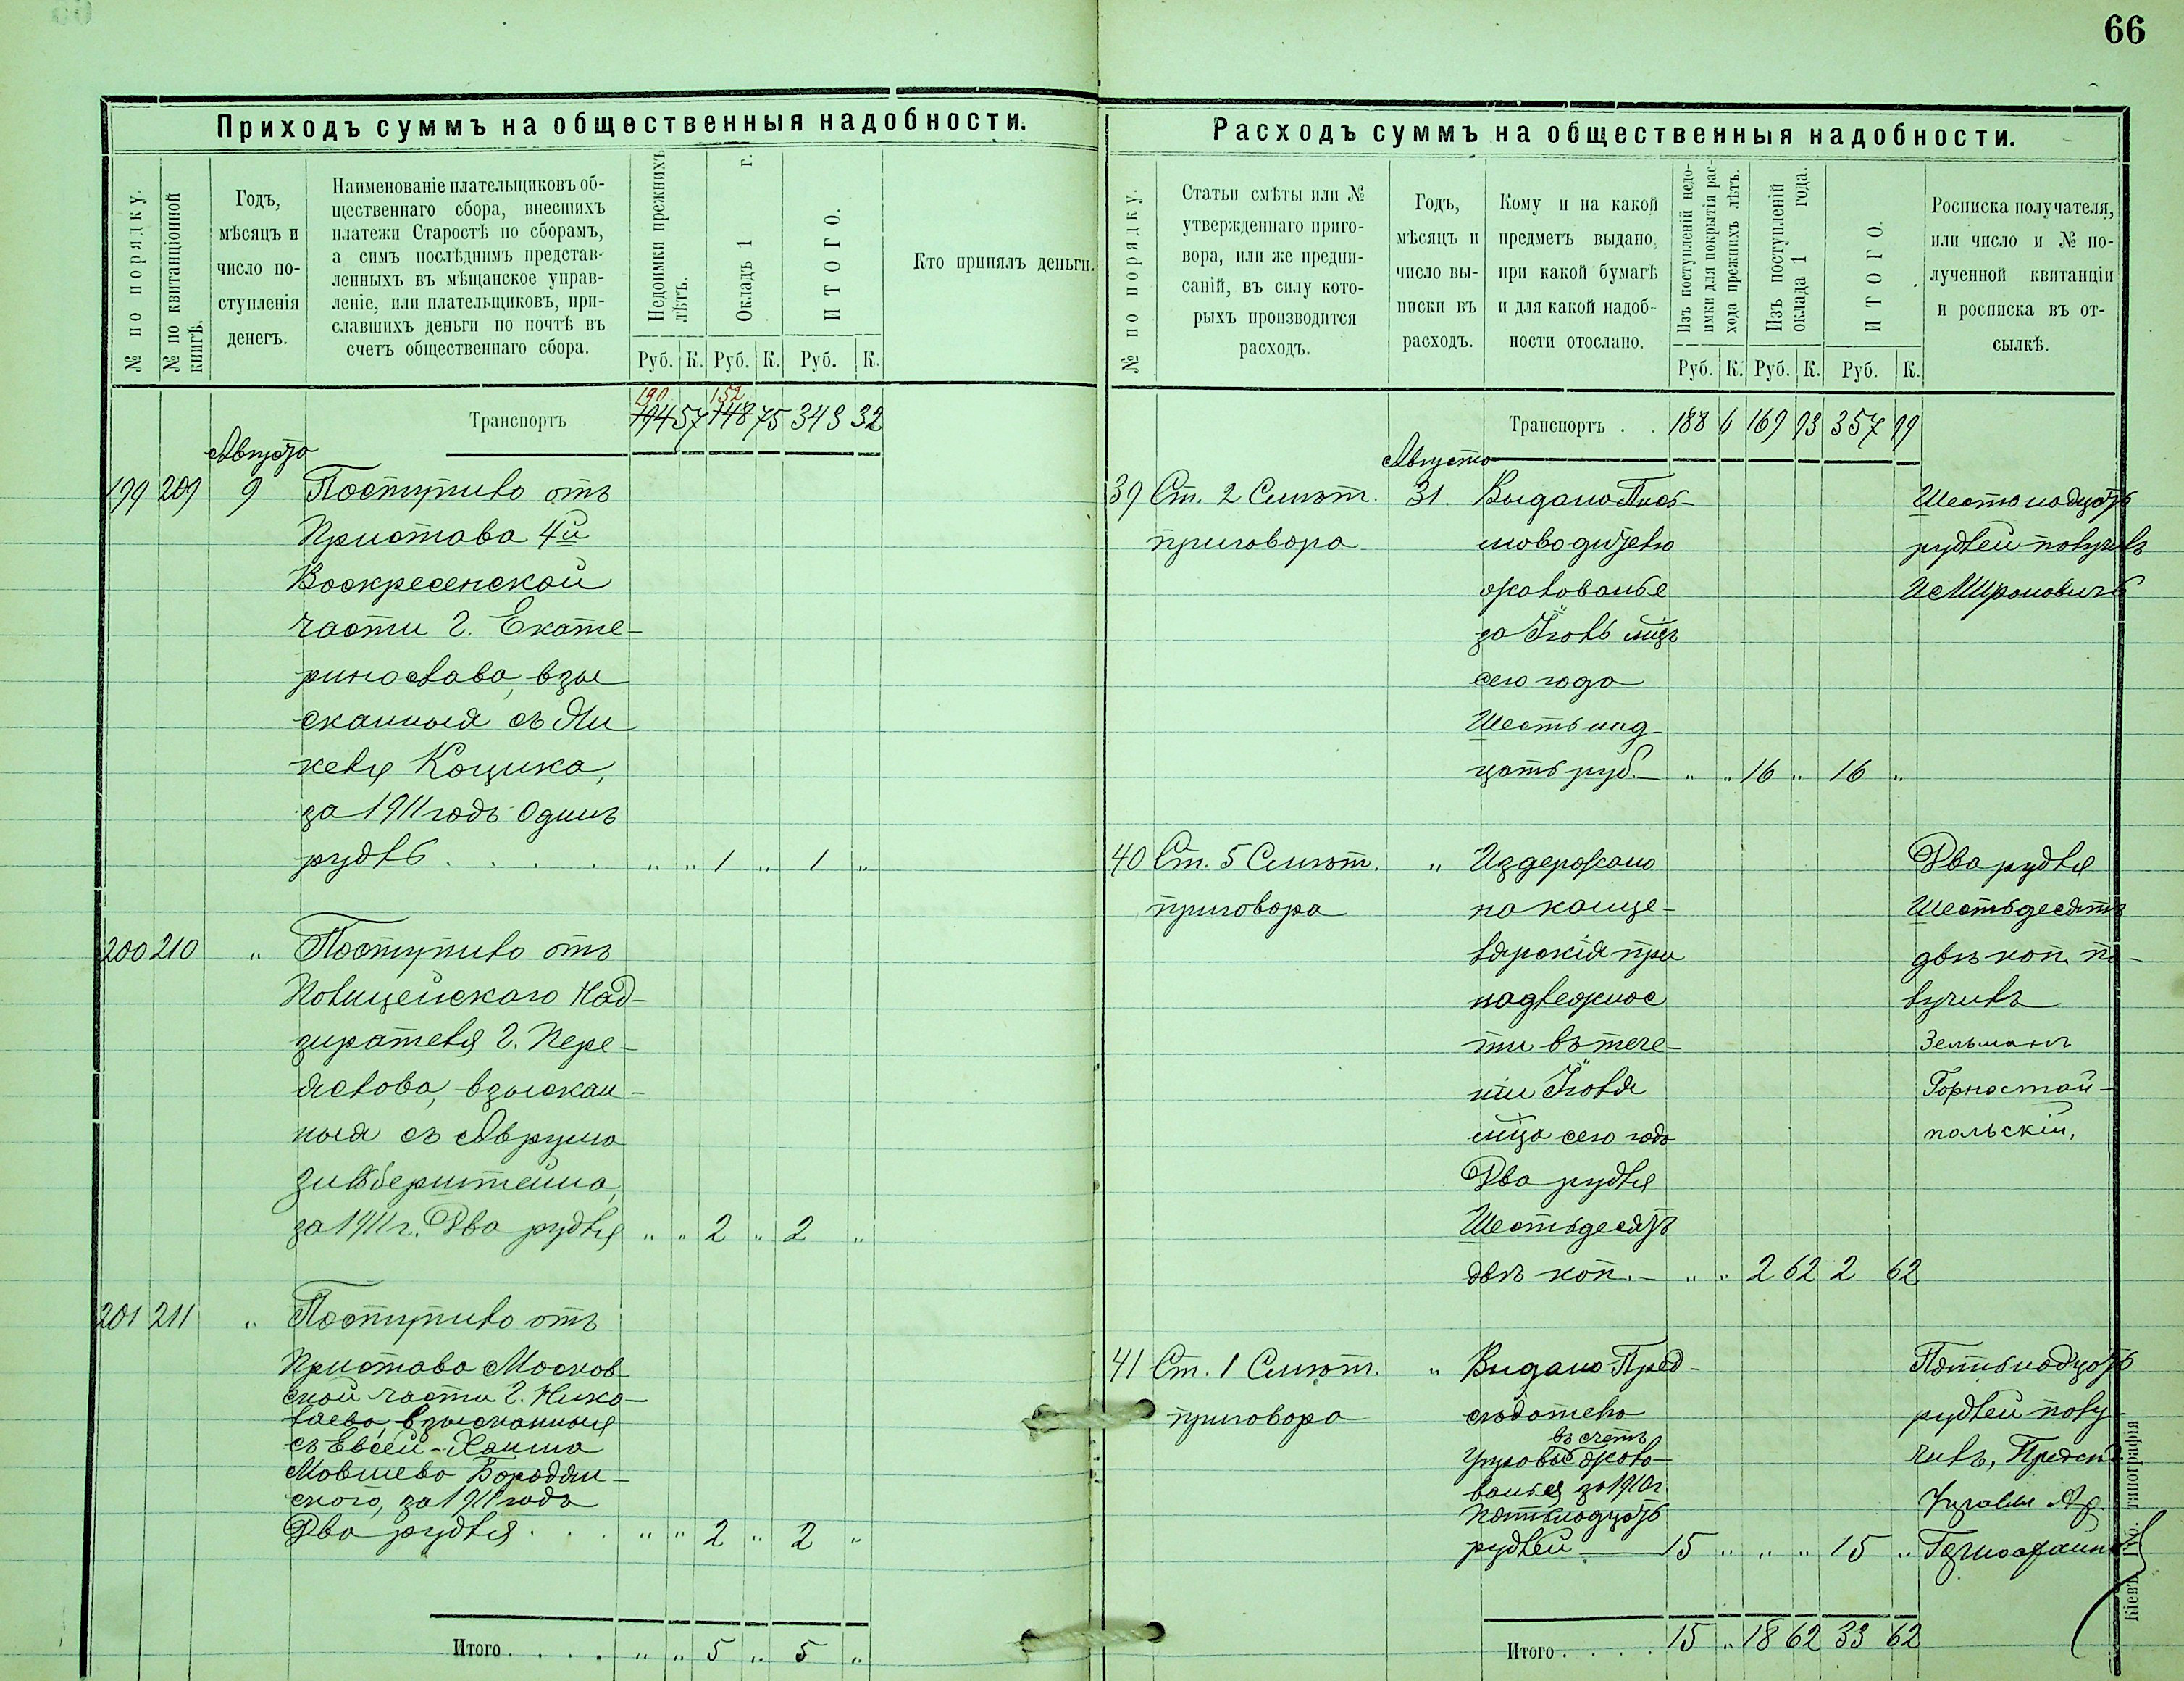 66
Приходъ суммъ на общественныя надобности.
№ по порядку.
№ по квитанціонной книгѣ.
Годъ,
мѣсяцъ и
число по-
ступленія
денегъ.
Наименованіе плательщиковъ об-
щественнаго сбора, внесшихъ
платежи Старостѣ по сборамъ,
а симъ послѣднимъ представ-
ленныхъ въ мѣщанское управ-
леніе, или плательщиковъ, при-
славшихъ деньги по почтѣ въ
счетъ общественнаго сбора.
Недоимки прежнихъ
лѣтъ.
Окладъ 1 г.
ИТОГО.
Руб. К. Руб. К. Руб. К.
Кто принялъ деньги.
190 152
Транспортъ 194 57 148 75 343 32
Августа
199 209 9 Поступило отъ
Пристава 4й
Воскресенской
части г. Екате-
ринослава, взы
сканныя съ Ми
хеля Кацика,
за 1911 годъ Одинъ
рубль . . . . " " 1 " 1 "
200 210 " Поступило отъ
Полицейскаго Над-
зирателя г. Пере-
яслова, взыскан-
ныя съ Аврума
Зильберштейна,
за 1911 г. Два рубля " " 2 " 2 "
201 211 " Поступило отъ
Пристава Москов
ской части г. Нико-
лаева, взысканныя
съ Евсей-Хаима
Мовшева Бородян-
ского, за 1911 годъ
Два рубля . . . " " 2 " 2 "
Итого . . . . " " 5 " 5 "
Расходъ суммъ на общественныя надобности.
№ по порядку.
Статьи смѣты или №
утвержденнаго приго-
вора, или же предпи-
саній, въ силу кото-
рыхъ производится
расходъ.
Годъ,
мѣсяцъ и
число вы-
писки въ
расходъ.
Кому и на какой
предметъ выдано,
при какой бумагѣ
и для какой надоб-
ности отослано.
Изъ поступленій недо-
имки для покрытія рас-
хода прежнихъ лѣтъ.
Изъ поступленій
оклада 1 года.
ИТОГО.
Руб. К. Руб. К. Руб. К.
Росписка получателя,
или число и № по-
лученной квитанціи
и росписка въ от-
сылкѣ.
Транспортъ . . 188 6 169 93 357 99
Августа
39 Ст. 2 Смѣт. 31. Выдано Пись-
приговора моводителю
жалованье
за Іюль мцъ
сего года
Шестьнад-
цать руб.— " " 16 " 16 "
Шестьнадцать
рублей получилъ
И Мироновичъ
40 Ст. 5 Смѣт. " Издержано
приговора на канце-
лярскія при
надлежнос
ти въ тече-
ніи Іюля
мца сего года
Два рубля
Шестьдесятъ
двѣ коп.— " " 2 62 2 62
Два рубля
Шестьдесятъ
двѣ коп. по-
лучилъ
Зельманъ
Горностай-
польскій,
41 Ст. 1 Смѣт. " Выдано Пред-
приговора сѣдателю
въ счетъ
Управы жало-
ванья за 1910 г.
Пятьнадцать
рублей — 15 " " " 15 "
Пятьнадцать
рублей полу-
чилъ, Предсѣд.
Управы
Итого . . . . 15 " 18 62 33 62
Кіевъ, Губ. типографія